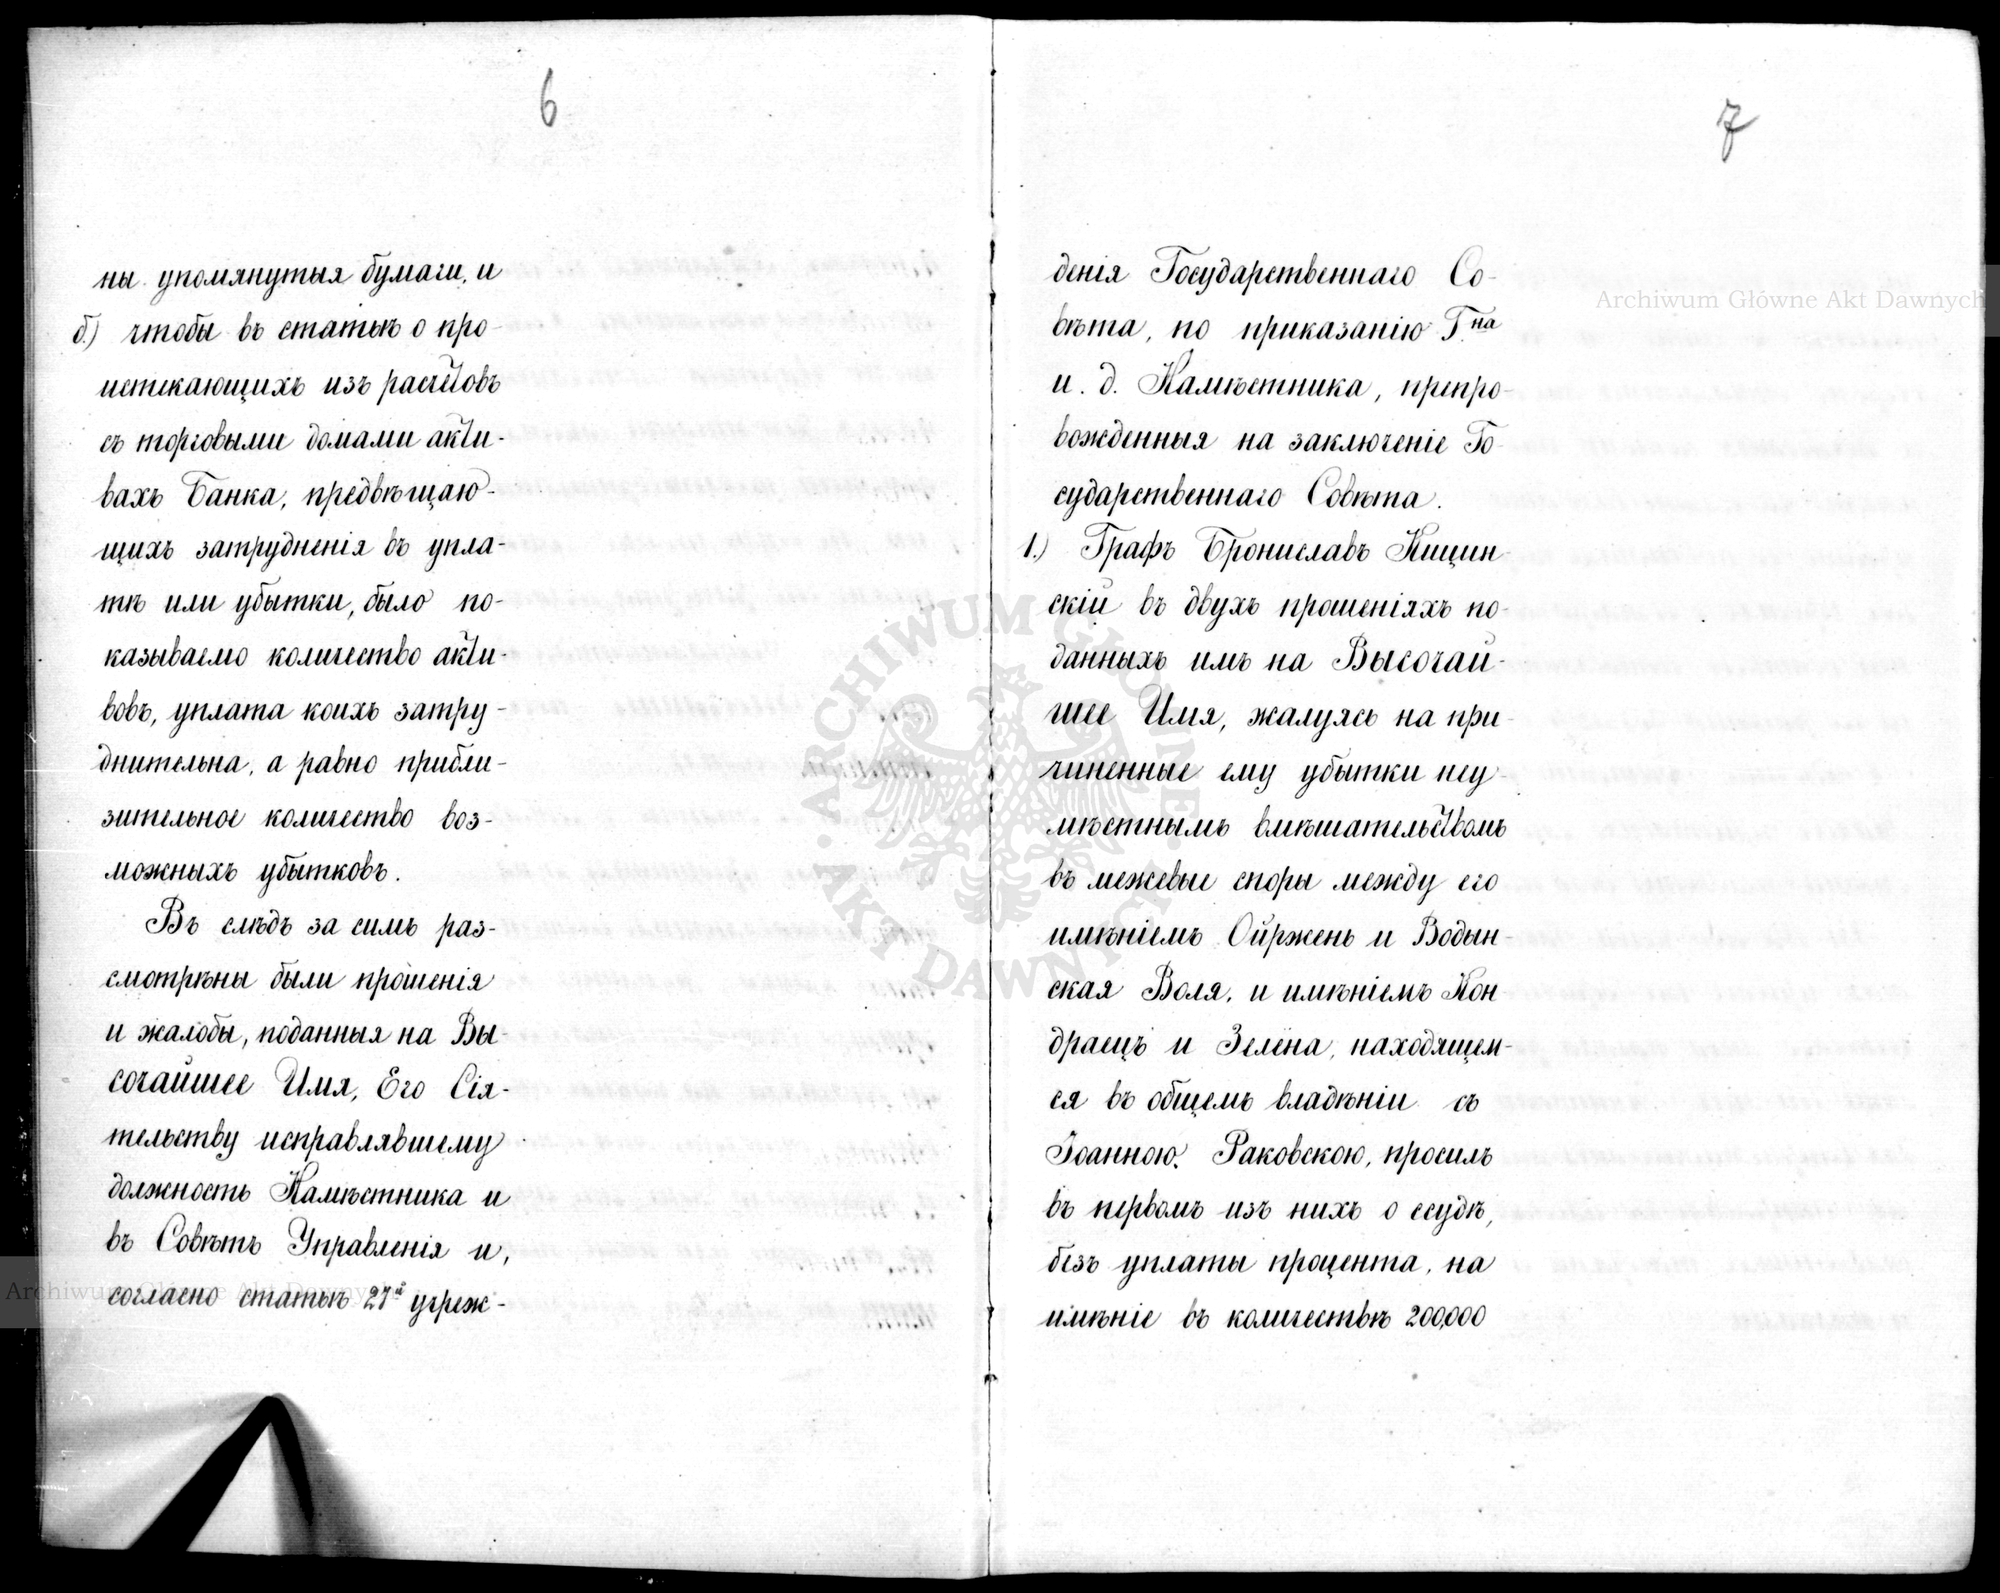 6
ны упомянутыя бумаги, и
б.) чтобы въ статьѣ о про-
истекающихъ изъ расчетовъ
съ торговыми домами акти-
вахъ Банка, предвѣщаю-
щихъ затрудненія въ упла-
тѣ или убытки, было по-
казываемо количество акти-
вовъ, уплата коихъ затру-
днительна, а равно прибли-
зительное количество воз-
можныхъ убытковъ.
Въ слѣдъ за симъ раз-
смотрѣны были прошенія
и жалобы, поданныя на Вы-
сочайшее Имя, Его Сія-
тельству исправлявшему
должность Намѣстника и
въ Совѣтъ Управленія и,
согласно статьѣ 27й учреж-
7
денія Государственнаго Со-
вѣта, по приказанію Г.на
и. д. Намѣстника, препро-
вожденныя на заключеніе Го-
сударственнаго Совѣта.
1.) Графъ Брониславъ Кицин-
скій въ двухъ прошеніяхъ по-
данныхъ имъ на Высочай-
шее Имя, жалуясь на при-
чиненные ему убытки неу-
мѣстнымъ вмѣшательствомъ
въ межевые споры между его
имѣніемъ Ойржень и Водын-
ская Воля, и имѣніемъ Кон
драецъ и Зелена, находящем-
ся въ общемъ владѣніи съ
Іоанною Раковскою, просилъ
въ первомъ изъ нихъ о ссудѣ,
безъ уплаты процента, на
имѣніе въ количествѣ 200,000
Archiwum Główne Akt Dawnych
Archiwum Główne Akt Dawnych
ARCHIWUM GŁÓWNE
AKT DAWNYCH